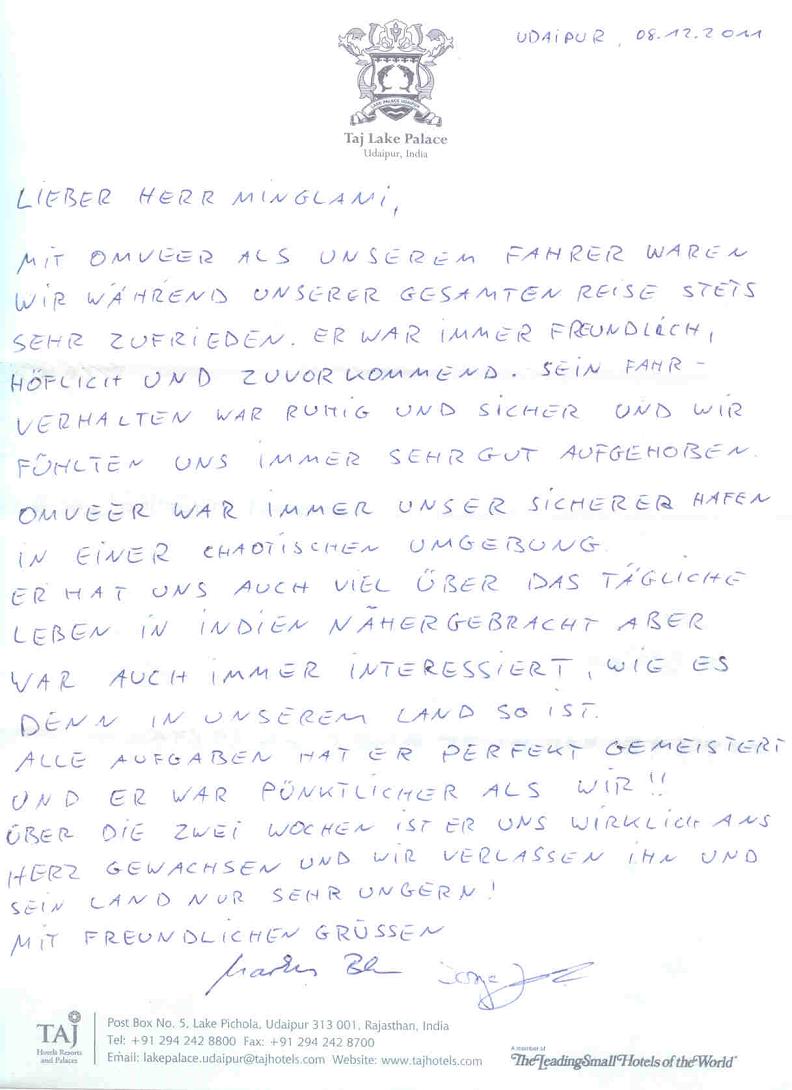 UDAIPUR, 08.12.2011
LAKE PALACE UDAIPUR
Taj Lake Palace
Udaipur, India
LIEBER HERR MINGLANI,
MIT OMVEER ALS UNSEREM FAHRER WAREN
WIR WÄHREND UNSERER GESAMTEN REISE STETS
SEHR ZUFRIEDEN. ER WAR IMMER FREUNDLICH,
HÖFLICH UND ZUVORKOMMEND. SEIN FAHR-
VERHALTEN WAR RUHIG UND SICHER UND WIR
FÜHLTEN UNS IMMER SEHR GUT AUFGEHOBEN.
OMVEER WAR IMMER UNSER SICHERER HAFEN
IN EINER CHAOTISCHEN UMGEBUNG.
ER HAT UNS AUCH VIEL ÜBER DAS TÄGLICHE
LEBEN IN INDIEN NÄHERGEBRACHT ABER
WAR AUCH IMMER INTERESSIERT, WIE ES
DENN IN UNSEREM LAND SO IST.
ALLE AUFGABEN HAT ER PERFEKT GEMEISTERT
UND ER WAR PÜNKTLICHER ALS WIR!!
ÜBER DIE ZWEI WOCHEN IST ER UNS WIRKLICH ANS
HERZ GEWACHSEN UND WIR VERLASSEN IHN UND
SEIN LAND NUR SEHR UNGERN!
MIT FREUNDLICHEN GRÜSSEN
TAJ
Hotels Resorts
and Palaces
Post Box No. 5, Lake Pichola, Udaipur 313 001, Rajasthan, India
Tel: +91 294 242 8800 Fax: +91 294 242 8700
Email: lakepalace.udaipur@tajhotels.com Website: www.tajhotels.com
A member of
The Leading Small Hotels of the World